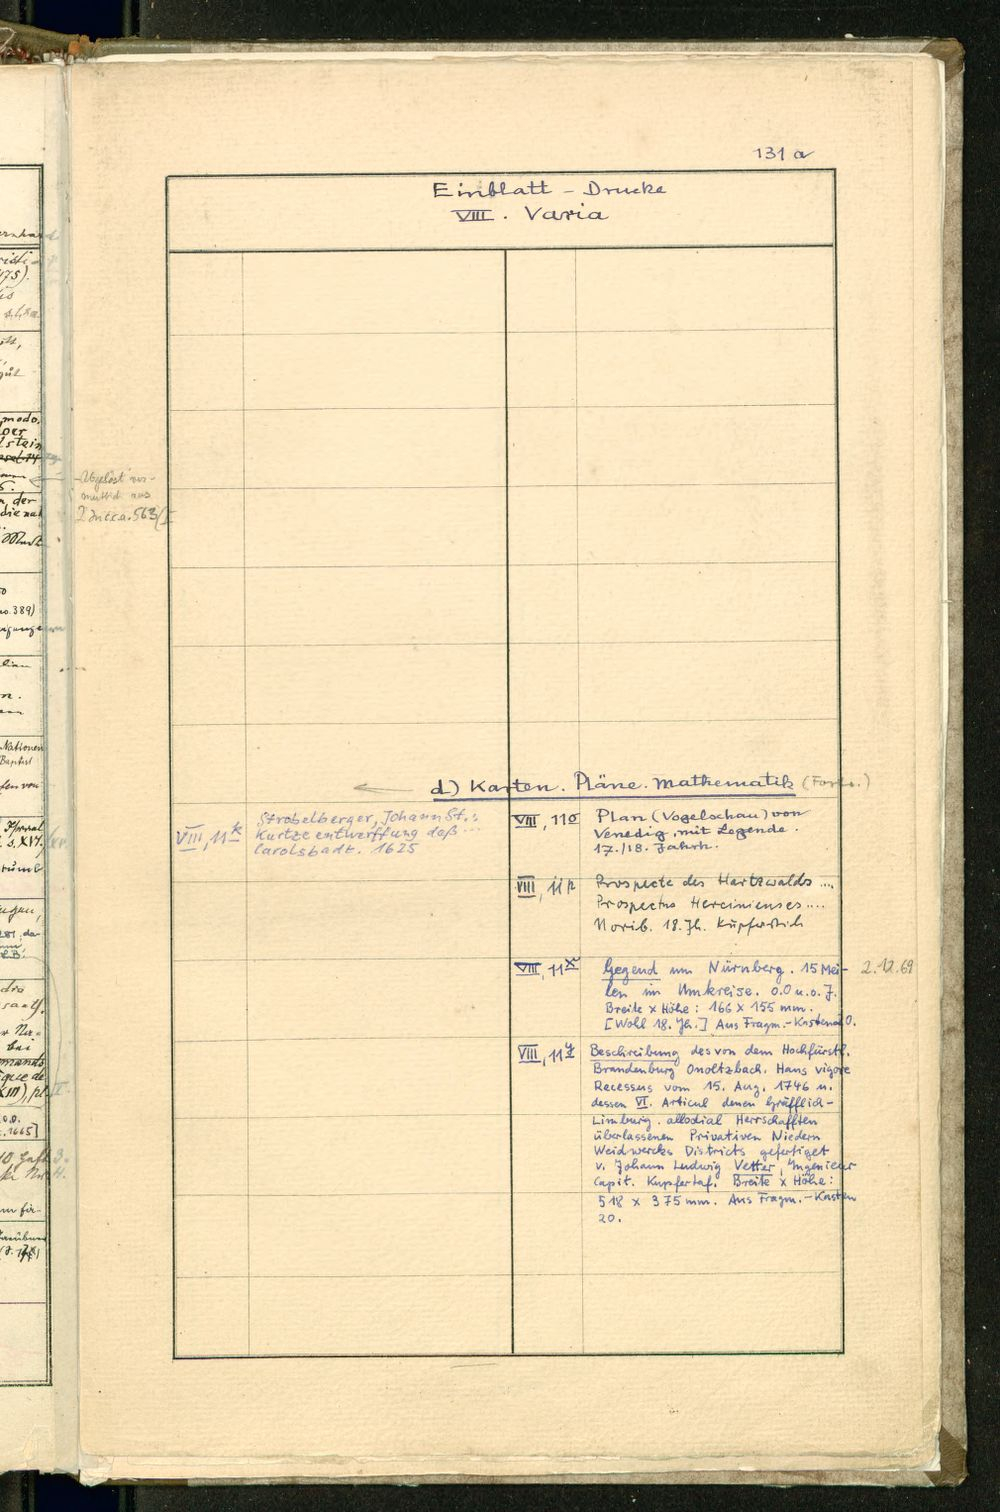 131 a
Einblatt - Drucke
VIII. Varia
modo.
der
no. 389)
Nationen
s. XVI.
bei
1665]
Abgelöst ver-
mutlich aus
2° Inc.c.a. 563/I
d.) Karten. Pläne. Mathematik (Forts.)
VIII, 11k
Strobelberger, Johann St.:
Kurtze entwerffung deß ...
Carolsbadt. 1625
VIII, 11o
Plan (Vogelschau) von
Venedig, mit Legende.
17./18. Jahrh.
VIII, 11p
Prospecte des Hartzwalds ....
Prospectus Hercinienses ....
Norib. 18. Jh. Kupferstich
VIII, 11x
Gegend um Nürnberg. 15 Mei-
len im Umkreise. o.O u. o. J.
Breite x Höhe: 166 x 155 mm.
[Wohl 18. Jh.] Aus Fragm.-Kasten 20.
2.12.69
VIII, 11y
Beschreibung des von dem Hochfürstl.
Brandenburg Onoltzbach. Haus vigore
Recessus vom 15. Aug. 1746 u.
dessen VI. Articul denen Gräfflich-
Limburg. allodial Herrschafften
überlassenen Privativen Niedern
Weidwercks Districts gefertiget
v. Johann Ludwig Vetter, Ingenieur
Capit. Kupfertaf. Breite x Höhe:
518 x 375 mm. Aus Fragm.-Kasten
20.